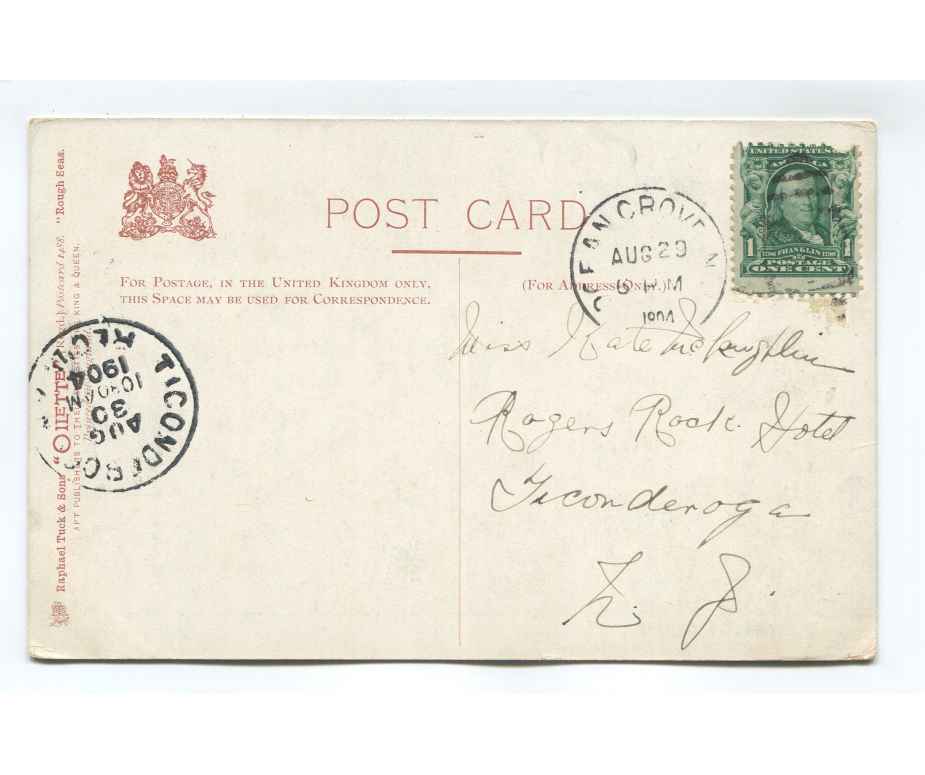 POST CARD
FOR POSTAGE, IN THE UNITED KINGDOM ONLY,
THIS SPACE MAY BE USED FOR CORRESPONDENCE.
(FOR ADDRESS ONLY.)
UNITED STATES
1 FRANKLIN 1
POSTAGE
ONE CENT
EAN GROVE N
AUG 29
M
1904
Miss Kate McLaughlin
Rogers Rock Hotel
Ticonderoga
N. J.
TICONDERO
AUG
30
10 30 AM
1904
REC'D
Raphael Tuck & Sons' "OILETTE" Postcard 1428. "Rough Seas.
ART PUBLISHERS TO THE KING & QUEEN.